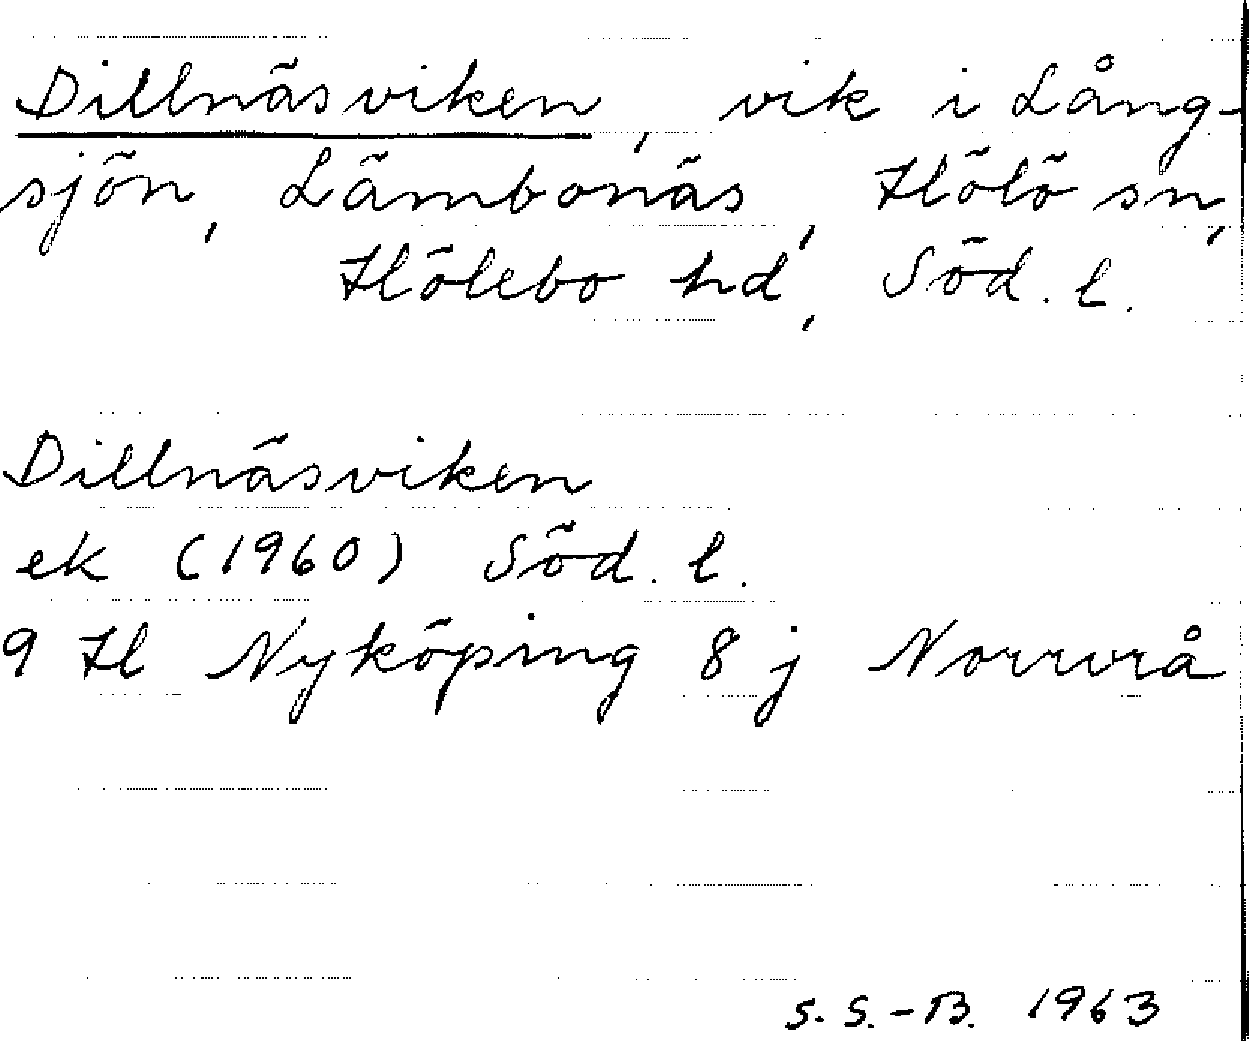 Dillnäsviken, vik i Lång-
sjön, Lämbonäs, Hölö sn,
Hölebo hd, Söd. l.
Dillnäsviken
ek (1960) Söd. l.
9 H Nyköping 8 j Norrvrå
S. S.-B. 1963